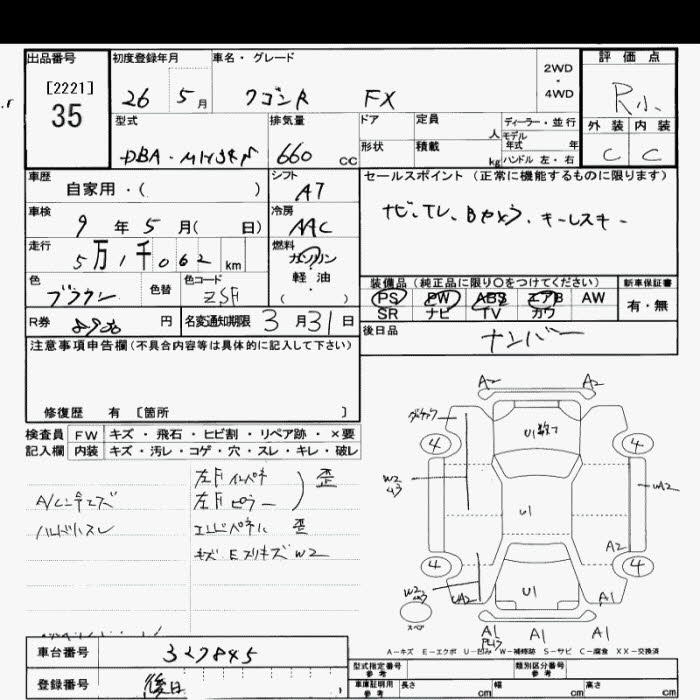 出品番号 初度登録年月 車名・グレード 2WD・4WD 評価点
[2221]
35
26 5月 ワゴンR FX R小
型式 排気量 ドア 定員 人 ディーラー・並行
モデル年式 年
外装 内装
660 cc 形状 積載 kg ハンドル 左・右 C C
車歴 シフト セールスポイント (正常に機能するものに限ります)
自家用・( ) AT
車検 冷房
9年5月( 日) AAC
走行 燃料
5万1千062km ガソリン
軽油
( )
色 色替 色コード 装備品 (純正品に限り○をつけてください) 新車保証書
ブラウン PS PW ABS エアB AW 有・無
SR ナビ TV カワ
R券 円 名変通知期限 3月31日 後日品 ナンバー
注意事項申告欄(不具合内容等は具体的に記入して下さい)
修復歴 有 [箇所 ]
検査員 FW キズ・飛石・ヒビ割・リペア跡・×要
記入欄 内装 キズ・汚レ・コゲ・穴・スレ・キレ・破レ
A2 A2
4 4
W2
U1
UA2
左F ピラー 歪
エンドパネル 歪
A2
4 4
W2
UA2 U1 A1
スペア
A1 A1 A1
A-キズ E-エクボ U-凹み W-補修跡 S-サビ C-腐食 XX-交換済
車台番号 327845
型式指定番号 参考 類別区分番号 参考
登録番号 後日
車庫証明用 参考 長さ cm 幅 cm 高さ cm